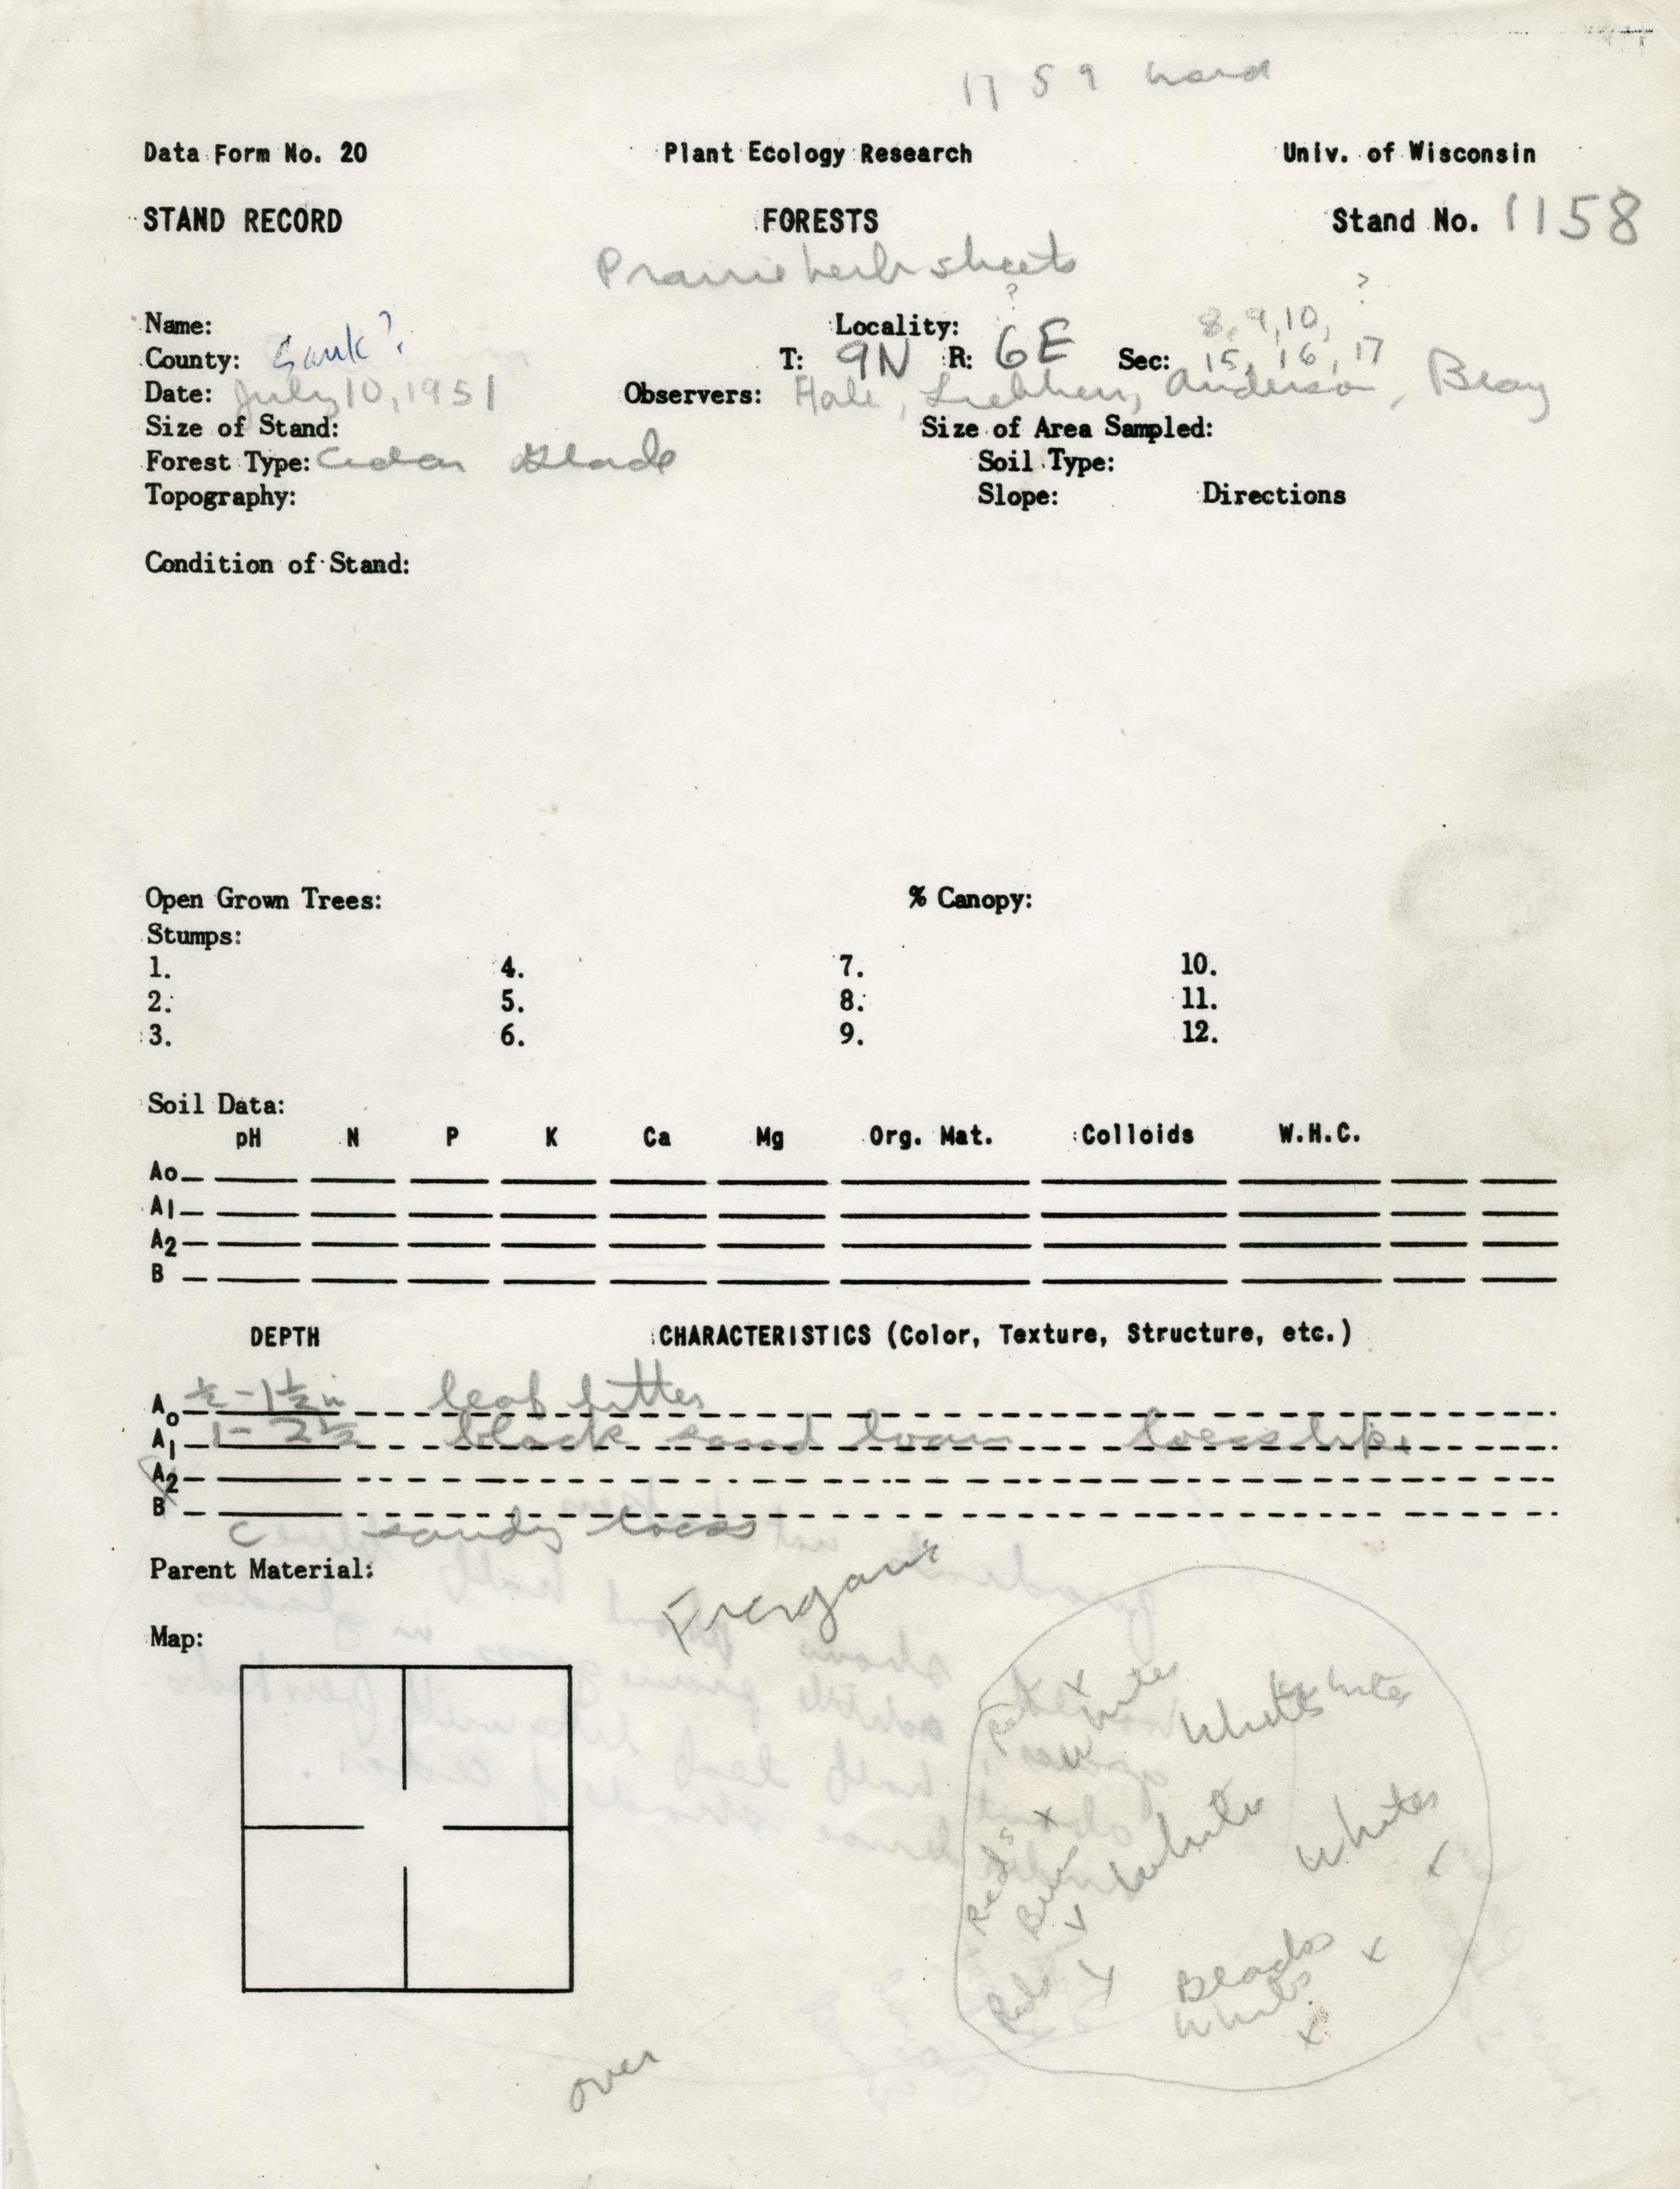 1759 hard
Data Form No. 20 Plant Ecology Research Univ. of Wisconsin
STAND RECORD FORESTS Stand No. 1158
Prairie herb sheets
? ?
Name: Locality: 8, 9, 10,
County: Sauk? T: 9N R: 6E Sec: 15, 16, 17
Date: July 10, 1951 Observers: Hale, Anderson, Bray
Size of Stand: Size of Area Sampled:
Forest Type: Cedar Glade Soil Type:
Topography: Slope: Directions
Condition of Stand:
Open Grown Trees: % Canopy:
Stumps:
1. 4. 7. 10.
2. 5. 8. 11.
3. 6. 9. 12.
Soil Data:
pH N P K Ca Mg Org. Mat. Colloids W.H.C.
Ao
A1
A2
B
DEPTH CHARACTERISTICS (Color, Texture, Structure, etc.)
Ao ½ - 1½ in leaf litter
A1 1 - 2½ black sand loam loess like
A2
B
C sandy loess
Parent Material:
Map:
Red x White White White
x
Reds Bur White Whites
x
Reds x Blacks x
Whites
x
over